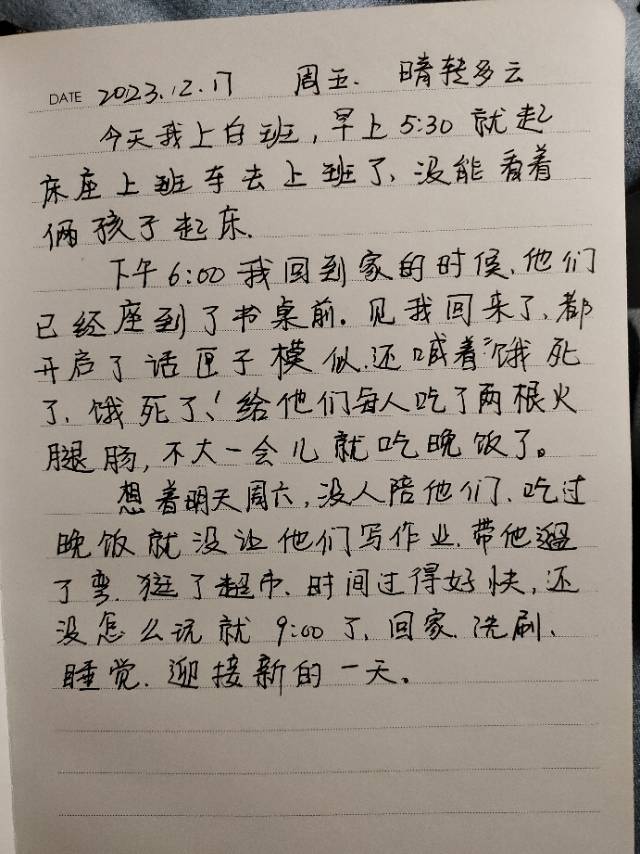 DATE 2023.12.17 周五. 晴转多云
今天我上白班,早上5:30就起
床座上班车去上班了、没能看着
俩孩子起床.
下午6:00我回到家的时候、他们
已经座到了书桌前.见我回来了、都
开启了话匣子模似.还喊着"饿死
了、饿死了、!给他们每人吃了两根火
腿肠,不大一会儿就吃晚饭了。
想着明天周六,没人陪他们、吃过
晚饭就没让他们写作业.带他遛
了弯.逛了超市.时间过得好快,还
没怎么玩就9:00了、回家.洗刷、
睡觉.迎接新的一天。